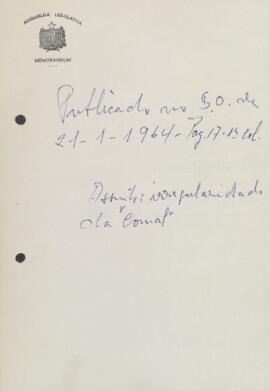 ASSEMBLEIA LEGISLATIVA
MEMORANDUM
Publicado no D.O. de
21-1-1964 - Pag. 17-1ª col.
Assunto: irregularidade
da "Comal"